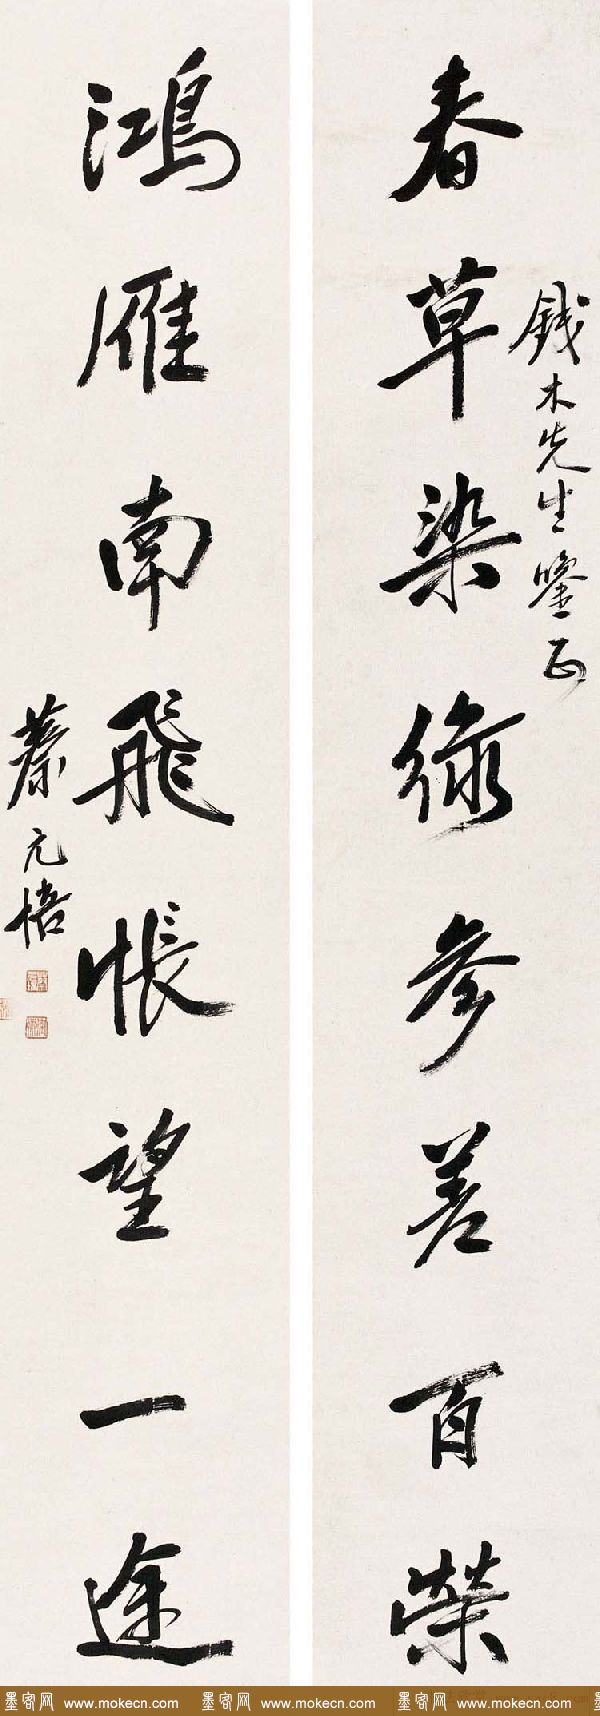 钱木先生鉴正
春草染绿参差百荣
鸿雁南飞怅望一途
蔡元培
墨客网 www.mokecn.com 墨客网 www.mokecn.com 墨客网 www.mokecn.com